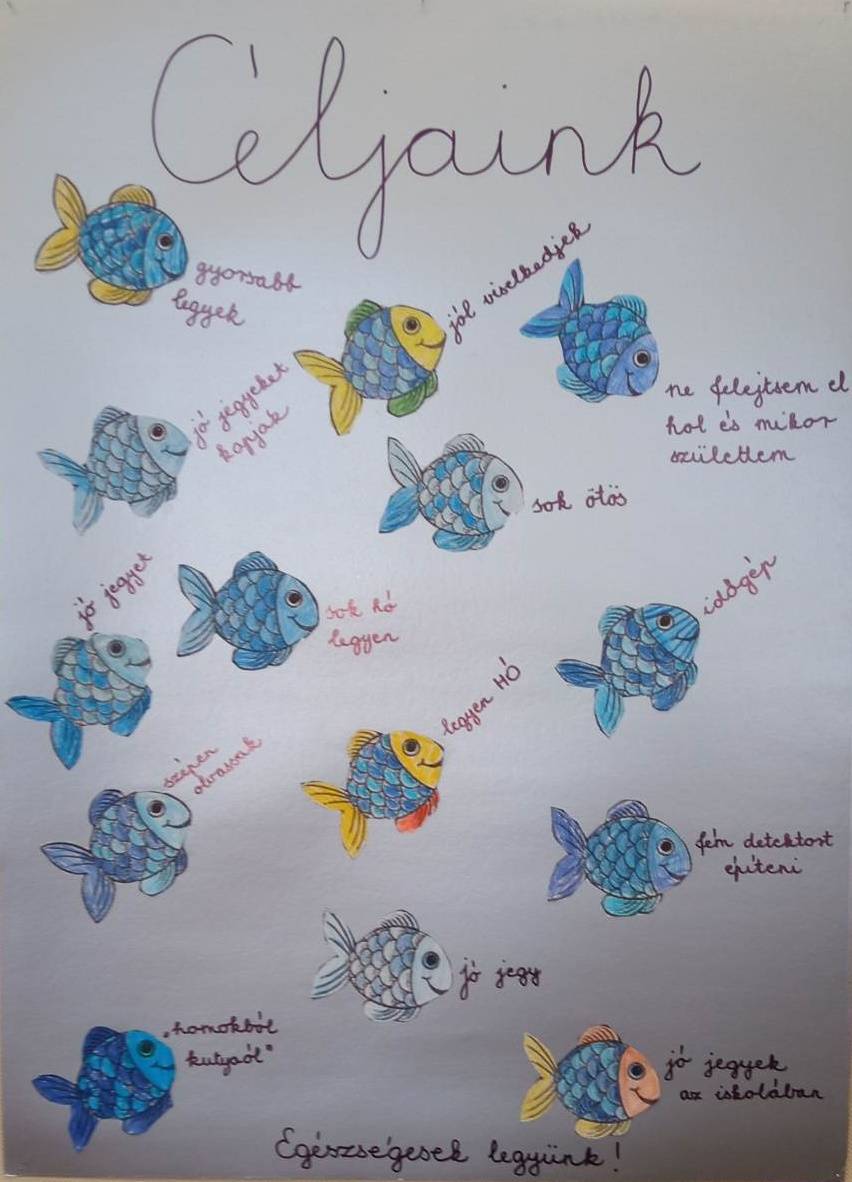 Céljaink
gyorsabb
legyek
jól viselkedjek
ne felejtsem el
hol és mikor
születtem
jó jegyeket
kapjak
sok ötös
jó jegyet
sok hó
legyen
időgép
legyen HÓ
szépen
olvassak
fém detektort
építeni
jó jegy
„homokból
kutyaól"
jó jegyek
az iskolában
Egészségesek legyünk!